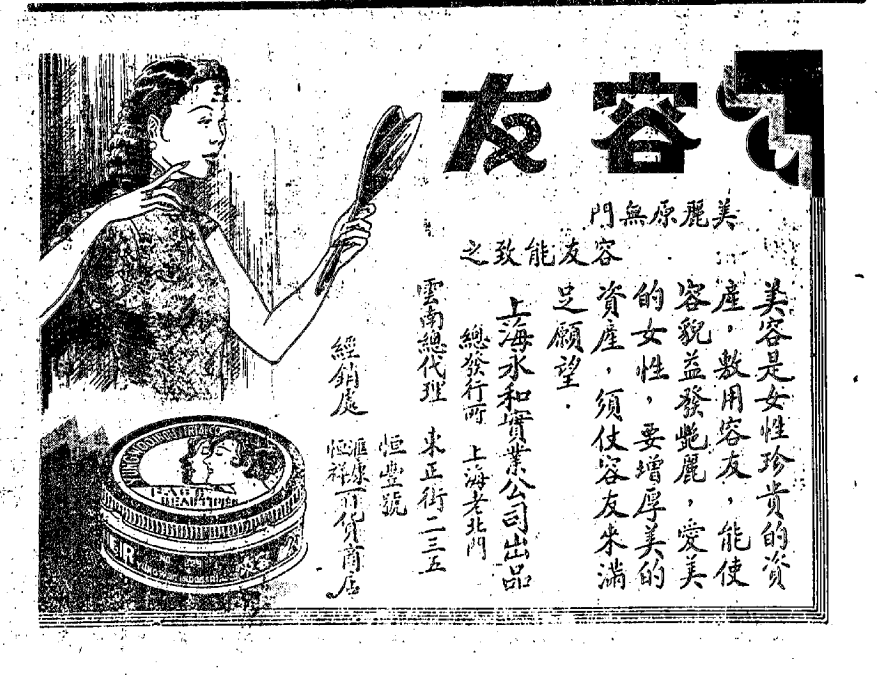 容友
美麗原無門
容友能致之
美容是女性珍貴的資
產，敷用容友，能使
容貌益發艷麗，愛美
的女性，要增厚美的
資產，須仗容友來滿
足願望．
上海永和實業公司出品
總發行所　上海老北門
雲南總代理　東正街二三五
恒豐號
經銷處
滙康
恒祥
百貨商店
FACE
BEAUTIFIER
R